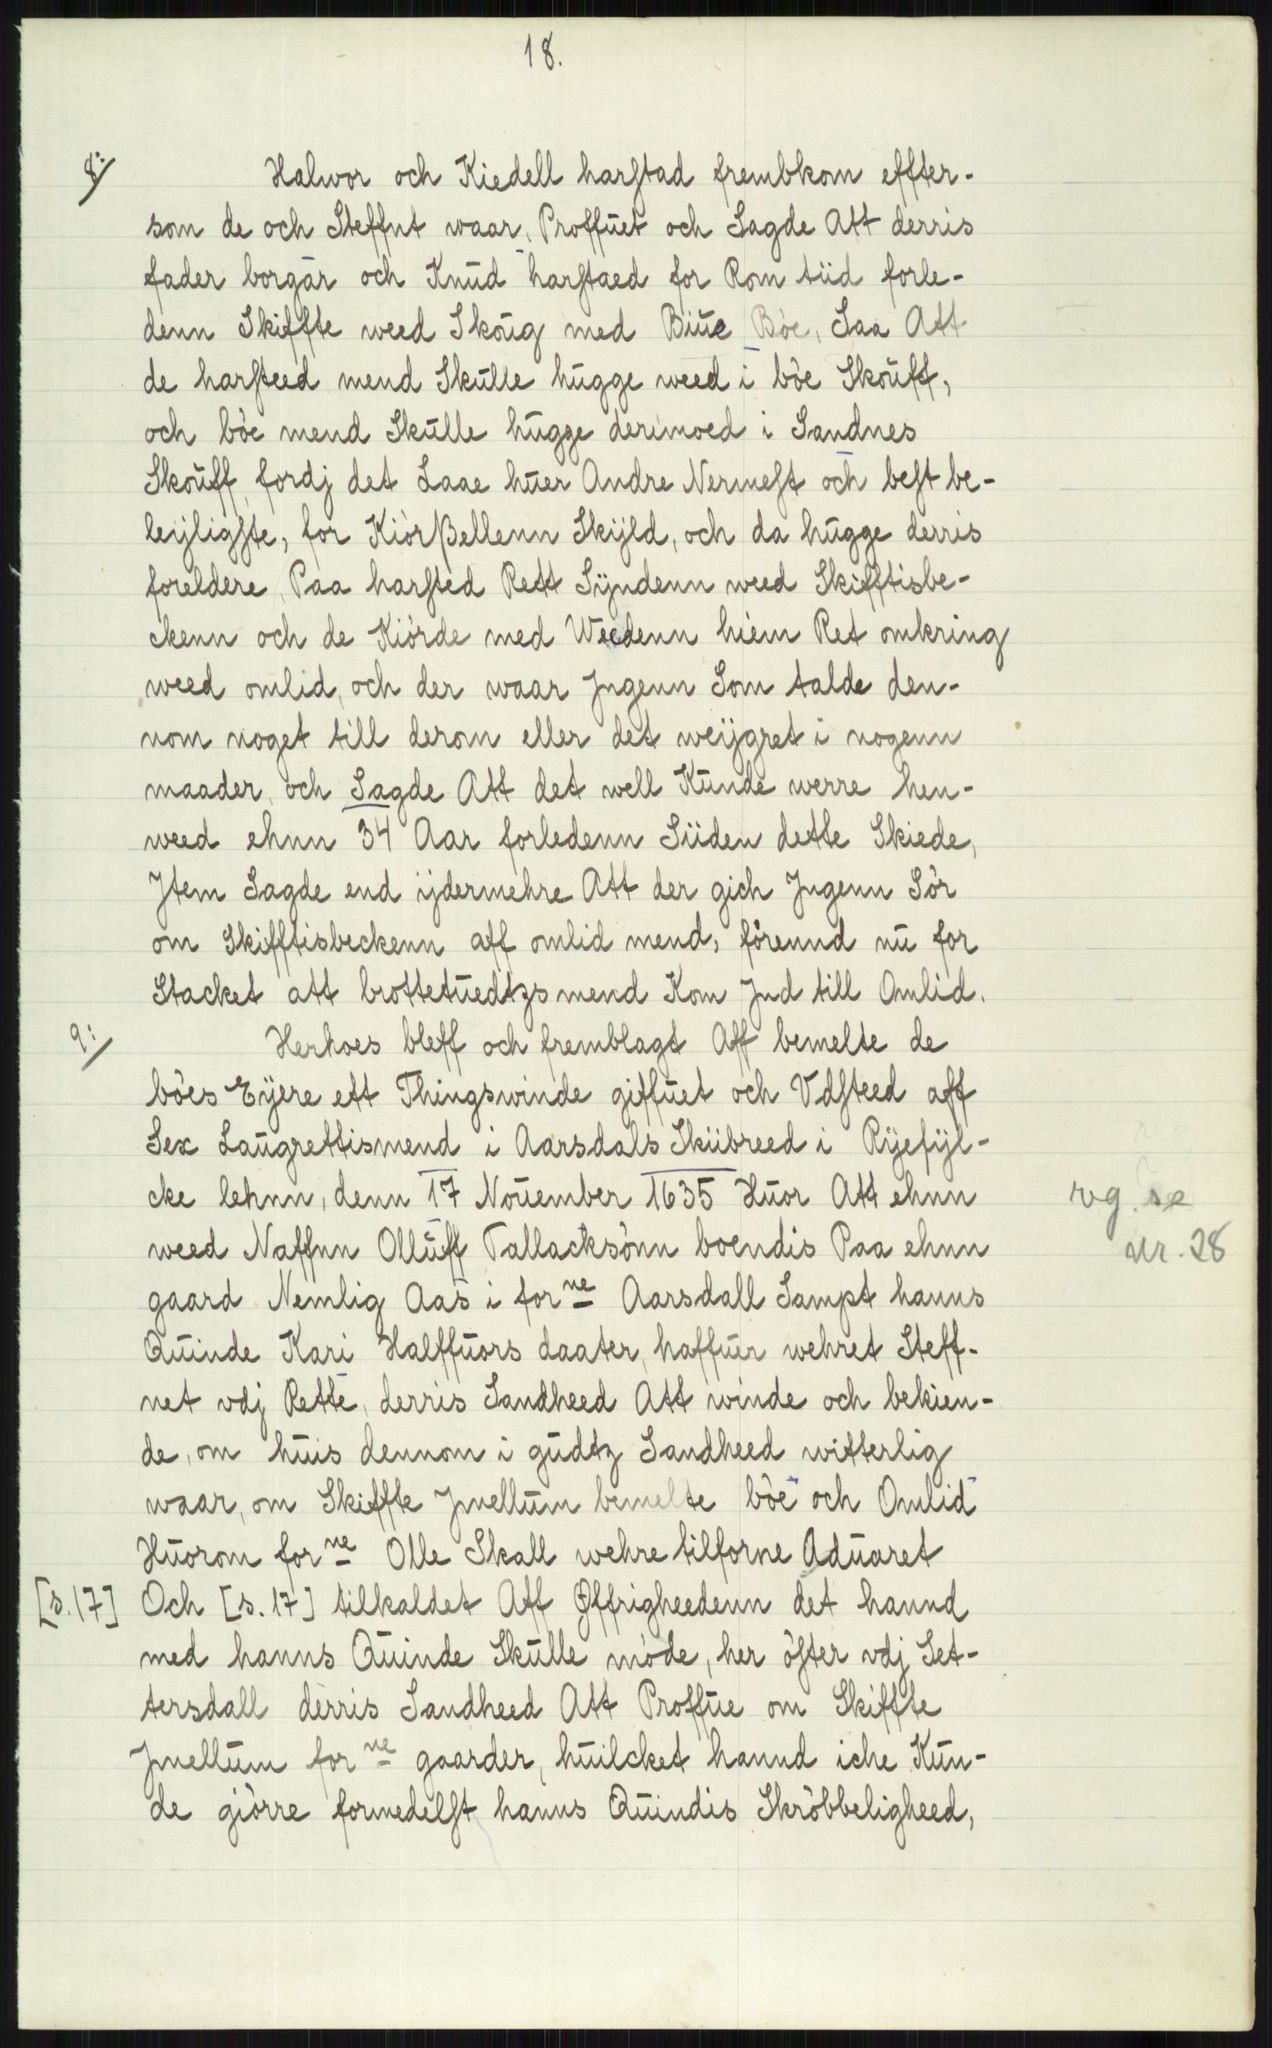 18.
8:/ Halwor och Kiedell harstad frembkom effter-
som de och Steffnt waar, Proffuet och Sagde Att derris
fader borgar och Knud harstaed for Rom tiid forle-
denn Skiffte weed Skoug med Biue Bòe, Saa Att
de harsteed mend Skulle hugge weed i bòe Skouff,
och bòe mend Skulle hugge derimoed i Sandnes
Skouff, fordj det Laae huer Andre Nermest och best be-
leijligste, for Kiòrßellenn Skijld, och da hugge derris
foreldere Paa harsted Rett Sÿndenn weed Skifftisbe-
ckenn och de Kiòrde med Weedenn hiem Ret omkring
weed omlid, och der waar Jngenn Som talde den-
nom noget till derom eller det weijgret i nogenn
maader, och Sagde Att det well Kunde werre hen-
weed ehnn 34 Aar forledenn Siiden dette Skiede,
Jtem Sagde end ijdermehre Att der gich Jngenn Sòr
om Skifftisbeckenn aff omlid mend, fòrennd nu for
Stacket att brottetuedtzs mend Kom Jnd till Omlid.
9:/ Herhoes bleff och fremblagt Aff bemelte de
bòes Eÿere ett Thingswinde giffuet och Vdsteed aff
Sex Laugrettismend i Aarsdals Skiibreed i Rÿefÿl-
cke lehnn, denn 17 Nouember 1635 Huor Att ehnn
weed Naffnn Olluff Tallacksònn boendis Paa ehnn
gaard Nemlig Aas i forne Aarsdall Sampt hanns
Quinde Kari Halffuors daater, haffuer wehret Steff-
net vdj Rette, derris Sandheed Att winde och bekien-
de, om huis dennom i gudtz Sandheed witterlig
waar, om Skiffte Jmellum bemelte bòe och Omlid
Huorom forne Olle Skall wehre tilforne Aduaret
[s.17] Och [s. 17] tilkaldet Aff Øffrigheedenn det hannd
med hanns Quinde Skulle mòde, her òfter vdj Set-
tersdall derris Sandheed Att Proffue om Skiffte
Jmellum forne gaarder, huilcket hannd iche Kun-
de giòrre formedelst hanns Quindis Skròbbeligheed,
vg. se
nr. 28